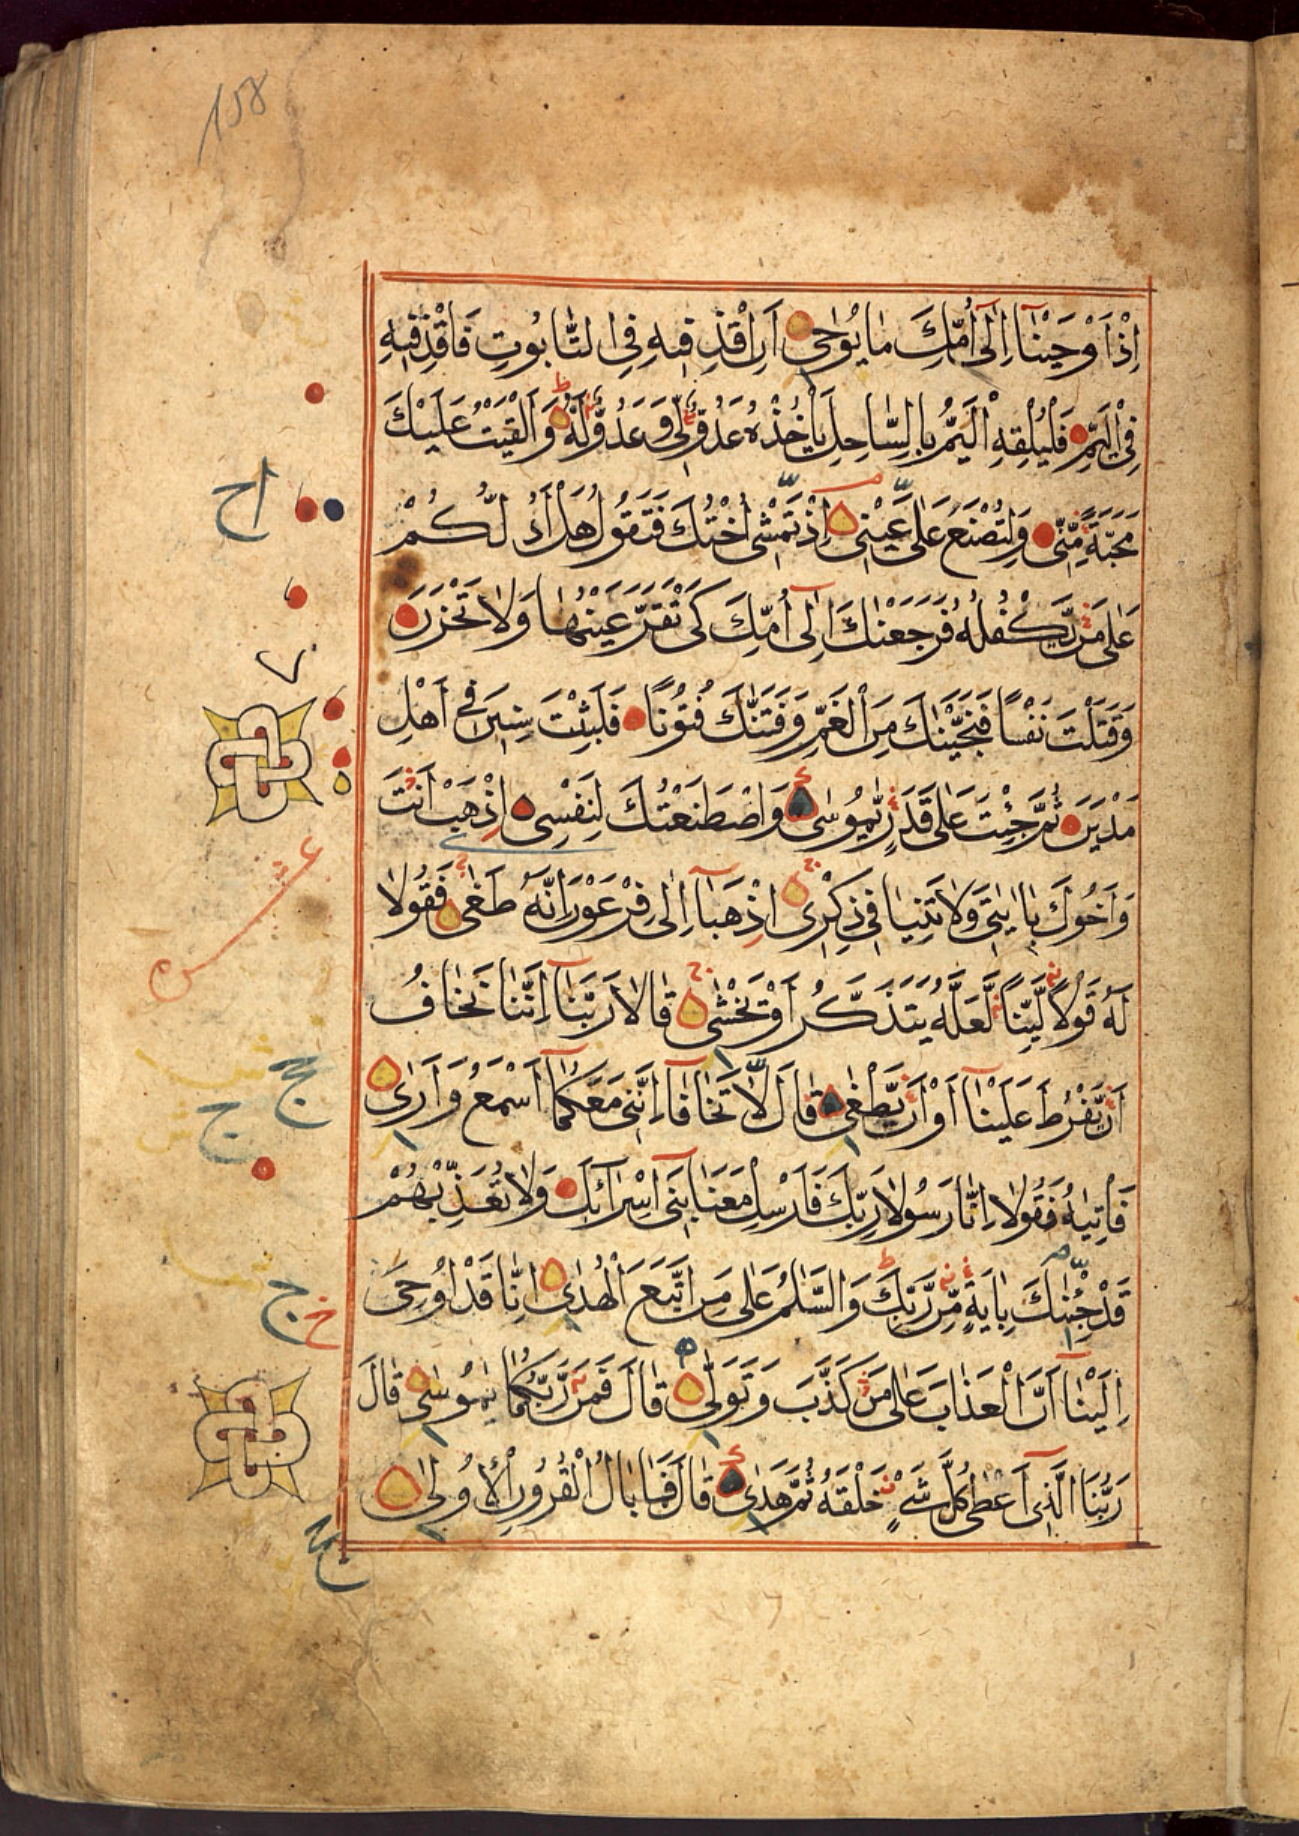 158
اِذْ اَوْحَيْنَآ اِلٰٓى اُمِّكَ مَا يُوْحٰى اَنِ اقْذِفِيْهِ فِى التَّابُوْتِ فَاقْذِفِيْهِ
فِى الْيَمِّ فَلْيُلْقِهِ الْيَمُّ بِالسَّاحِلِ يَاْخُذْهُ عَدُوٌّ لِّى وَعَدُوٌّ لَّهٗ وَاَلْقَيْتُ عَلَيْكَ
مَحَبَّةً مِّنِّى وَلِتُصْنَعَ عَلٰى عَيْنِى اِذْ تَمْشِىٓ اُخْتُكَ فَتَقُوْلُ هَلْ اَدُلُّكُمْ
عَلٰى مَنْ يَّكْفُلُهٗ فَرَجَعْنٰكَ اِلٰٓى اُمِّكَ كَىْ تَقَرَّ عَيْنُهَا وَلَا تَحْزَنَ
وَقَتَلْتَ نَفْسًا فَنَجَّيْنٰكَ مِنَ الْغَمِّ وَفَتَنّٰكَ فُتُوْنًا فَلَبِثْتَ سِنِيْنَ فِىٓ اَهْلِ
مَدْيَنَ ثُمَّ جِئْتَ عَلٰى قَدَرٍ يّٰمُوْسٰى وَاصْطَنَعْتُكَ لِنَفْسِى اِذْهَبْ اَنْتَ
وَاَخُوْكَ بِاٰيٰتِى وَلَا تَنِيَا فِى ذِكْرِى اِذْهَبَآ اِلٰى فِرْعَوْنَ اِنَّهٗ طَغٰى فَقُوْلَا
لَهٗ قَوْلًا لَّيِّنًا لَّعَلَّهٗ يَتَذَكَّرُ اَوْ يَخْشٰى قَالَا رَبَّنَآ اِنَّنَا نَخَافُ
اَنْ يَّفْرُطَ عَلَيْنَآ اَوْ اَنْ يَّطْغٰى قَالَ لَا تَخَافَآ اِنَّنِى مَعَكُمَآ اَسْمَعُ وَاَرٰى
فَاْتِيٰهُ فَقُوْلَآ اِنَّا رَسُوْلَا رَبِّكَ فَاَرْسِلْ مَعَنَا بَنِىٓ اِسْرَآئِلَ وَلَا تُعَذِّبْهُمْ
قَدْ جِئْنٰكَ بِاٰيَةٍ مِّنْ رَّبِّكَ وَالسَّلٰمُ عَلٰى مَنِ اتَّبَعَ الْهُدٰى اِنَّا قَدْ اُوْحِىَ
اِلَيْنَآ اَنَّ الْعَذَابَ عَلٰى مَنْ كَذَّبَ وَتَوَلّٰى قَالَ فَمَنْ رَّبُّكُمَا يٰمُوْسٰى قَالَ
رَبُّنَا الَّذِىٓ اَعْطٰى كُلَّ شَىْءٍ خَلْقَهٗ ثُمَّ هَدٰى قَالَ فَمَا بَالُ الْقُرُوْنِ الْاُوْلٰى